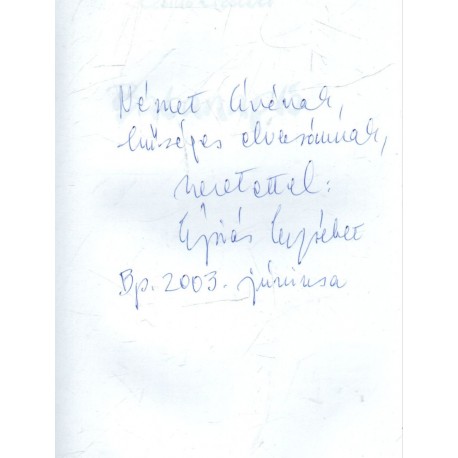 Német Évának,
hűséges olvasómnak,
szeretettel:
Erzsébet
Bp. 2003. júniusa